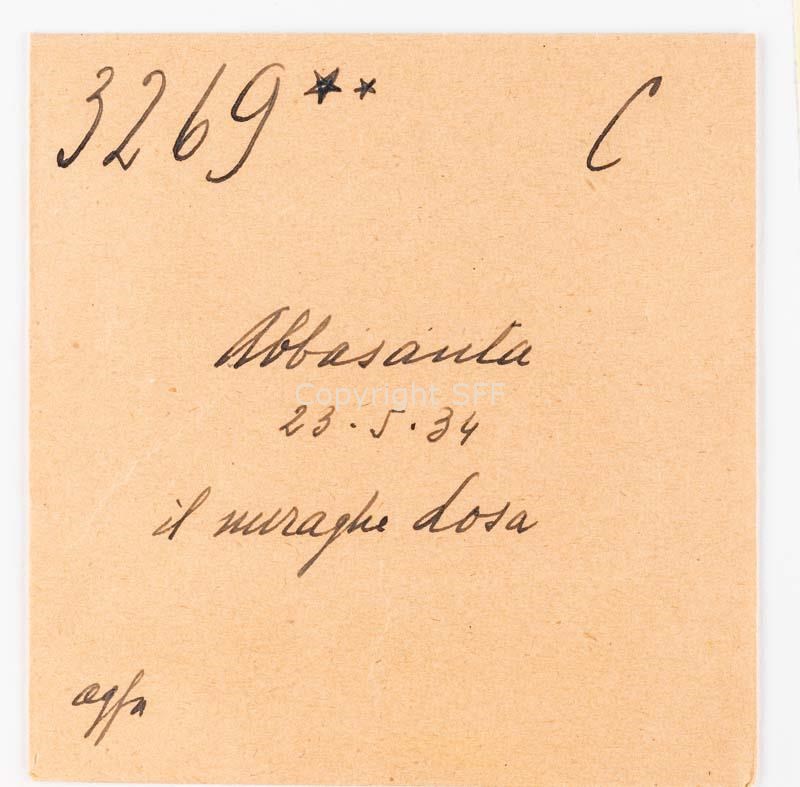 3269** C
Abbasanta
Copyright SFF
23.5.34
il nuraghe Losa
agfa